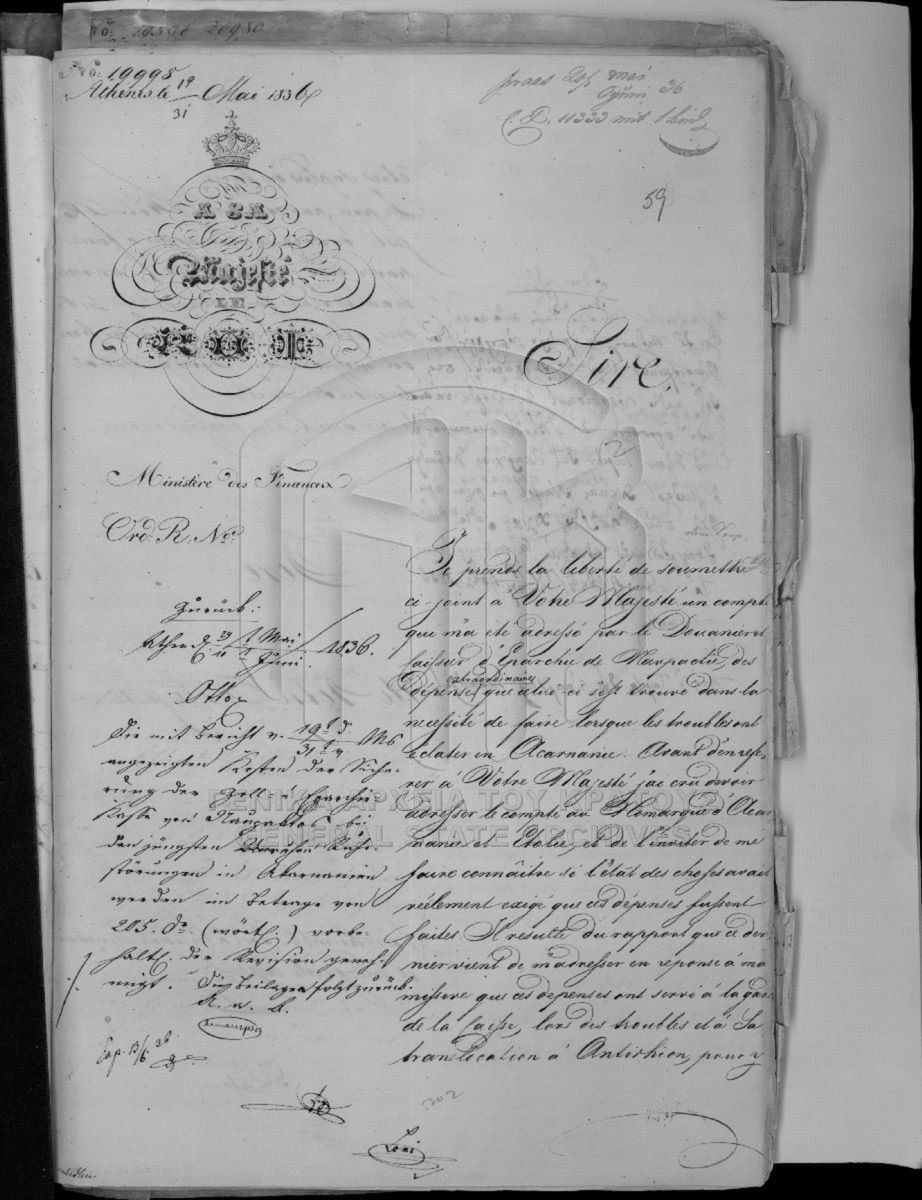 No: 19590 20980
No: 19998
Athènes le 19/31 Mai 1836
praes 20/1 Mai/Juni 36
C. P. 11333 mit 1 Beil
59
A SA
Majesté
LE
ROI
Sire,
2
Ministère des Finances
Ord. R. No:
Je prends la liberté de soumettre
ci-joint à Votre Majesté un compte
qui m'a été adressé par le Douanier et
Caissier d'Eparchie de Navpactie, des
dépenses extraordinaires que celui-ci s'est trouvé dans la
necessité de faire lorsque les troubles ont
éclater en Acarnanie. Avant d'en réfé-
rer à Votre Majesté j'ai cru devoir
adresser le compte au Nomarque d'Acar
nanie et Etolie, et de l'inviter de me
faire connâitre si l'état des choses avait
réelement exigé que ces dépenses fussent
faites Il resulte du rapport que ce der
nier vient de m'adresser en reponse à ma
missive que ces depenses ont servi à la gar
de la Caisse, lors des troubles et à Sa
translocation à Antirhion, pour y
Zurück:
Athen d. Mai/Juni 1836.
Otto
Die mit Bericht v. 19/31
angezeigten Kosten der Siche-
rung der Zoll u Eparchie-
Kasse von Naupaktos bei
den jüngsten Ruhe-
störungen in Akarnanien
werden im Betrage von
205. Dr. (wörtl.) vorbe-
haltl. der Revision geneh-
migt. Die Beilagen folgt zurück.
A. a. B.
Exp. 13/6 36.
ΓΕΝΙΚΑ ΑΡΧΕΙΑ ΤΟΥ ΚΡΑΤΟΥΣ
GENERAL STATE ARCHIVES